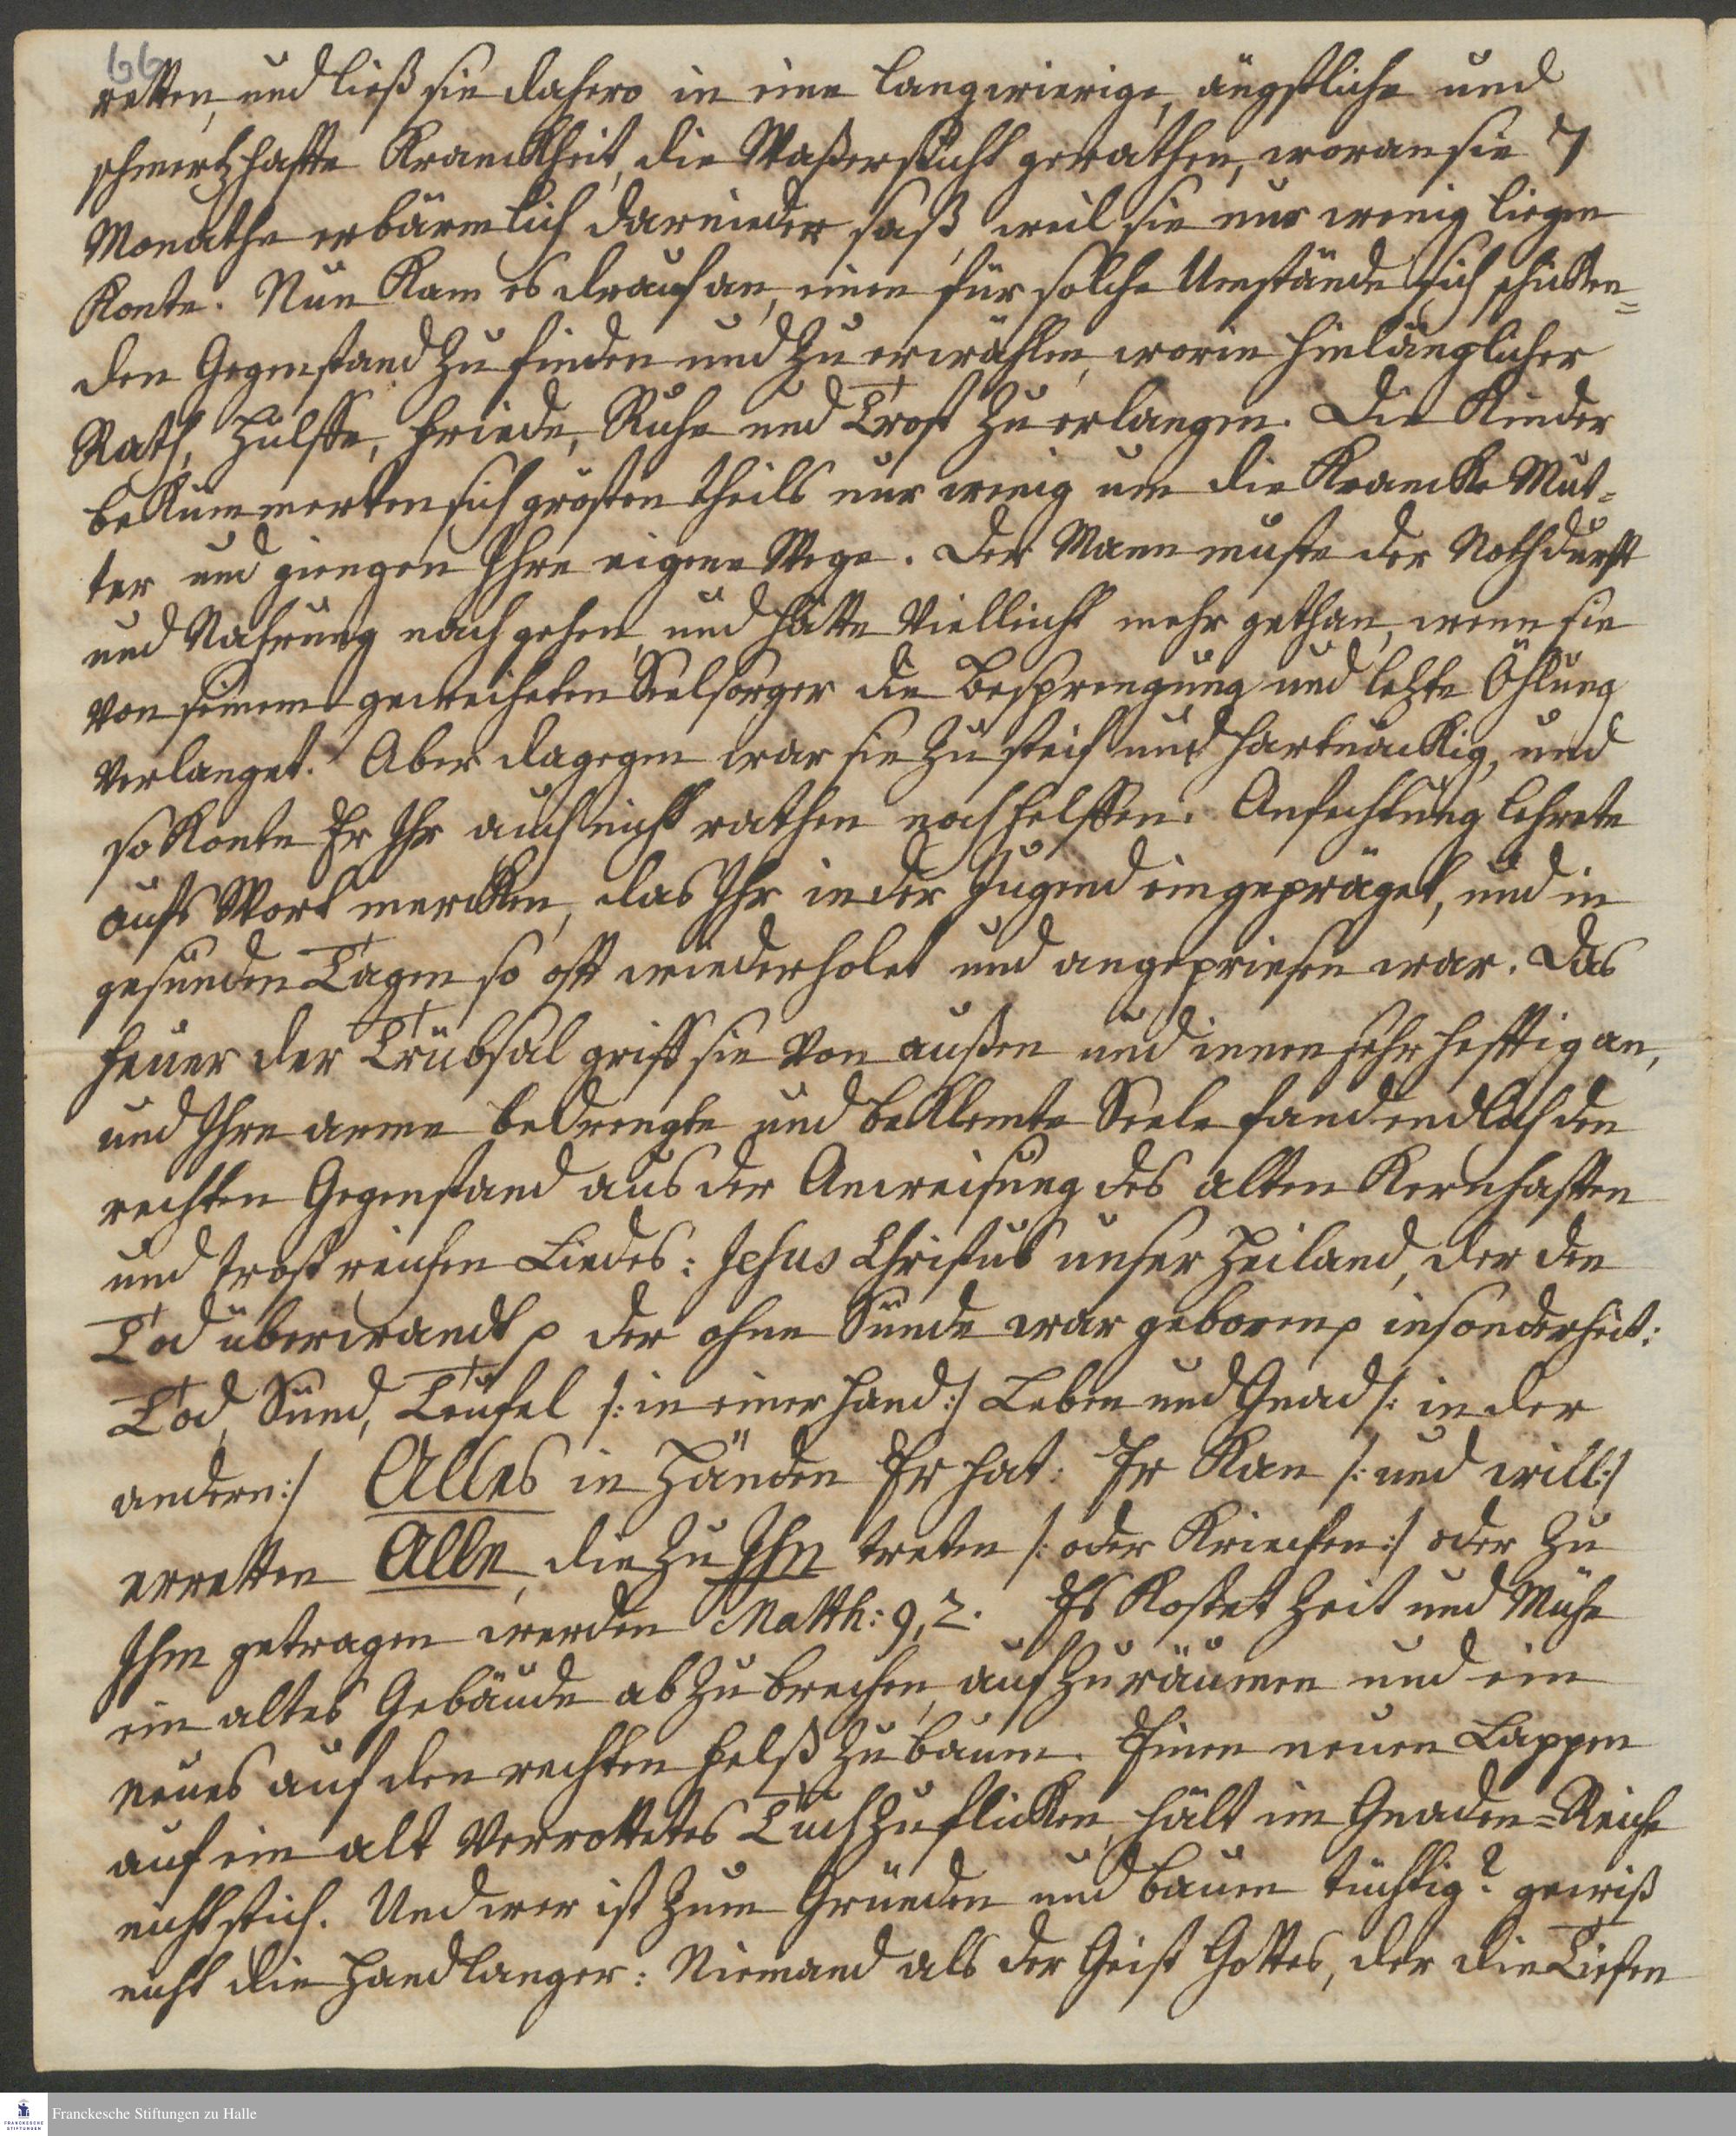 66
retten, und ließ sie dahero in eine langwierige, ängstliche und
schmertzhaffte Kranckheit, die Waßersücht gerathen, woran sie 7
Monathe erbärmlich darnieder saß, weil sie nur wenig liegen
Konte. Nun Kam es drauf an, einen für solche Umstände sich schicken=
den Gegenstand zu finden und zu erwählen, worin hinlänglicher
Rath, Hülffe, Friede, Ruhe und Trost zu erlangen. Die Kinder
beKümmerten sich grösten theils nur wenig um die Krancke Mut=
ter und giengen Ihre eigene Wege. Der Mann muste der Nothdurfft
und Nahrung nach gehen, und hätte Vielleicht mehr gethan, wenn sie
von seinem geweiheten Seelsorger die Besprengung und letzte Öhlung
verlanget. Aber dagegen war sie zu steif und hartnäckig, und
so Konte Er Ihr auch nicht rathen noch helffen. Anfechtung lehrete
aufs Wort mercken, das Ihr in der Jugend eingepräget, und in
gesunden Tagen so oft wiederholet und angepriesen war. Das
Feuer der Trübsal griff sie von außen und innen sehr hefftig an,
und Ihre arme bedrengte und beklemte Seele fand endlich den
rechten Gegenstand aus der Anweisung des alten Kernhafften
und trostreichen Liedes: Jesus Christus unser Heiland, der den
Tod überwandt p der ohne Sünde war geboren p insonderheit:
Tod, Sünd, Teufel /: in einer Hand :/ Leben und Gnad /: in der
andern :/ Alles in Händen Er hat: Er Kan /: und will :/
erretten Alle, die zu Ihm treten /: oder Kriechen :/ oder zu
Ihm getragen werden Matth: 9, 2. Es Kostet Zeit und Mühe
ein altes Gebäude abzubrechen, aufzuräumen und ein
neues auf den rechten Felß zu bauen. Einen neuen Lappen
auf ein alt Verrottetes Tuch zu flicken, hält im Gnaden=Reiche
nicht stich. Und wer ist zum Gründen und bauen tüchtig? gewiß
nicht die Handlanger: Niemand als der Geist Gottes, der die Tiefen
FRANCKESCHE
STIFTUNGEN
Franckesche Stiftungen zu Halle